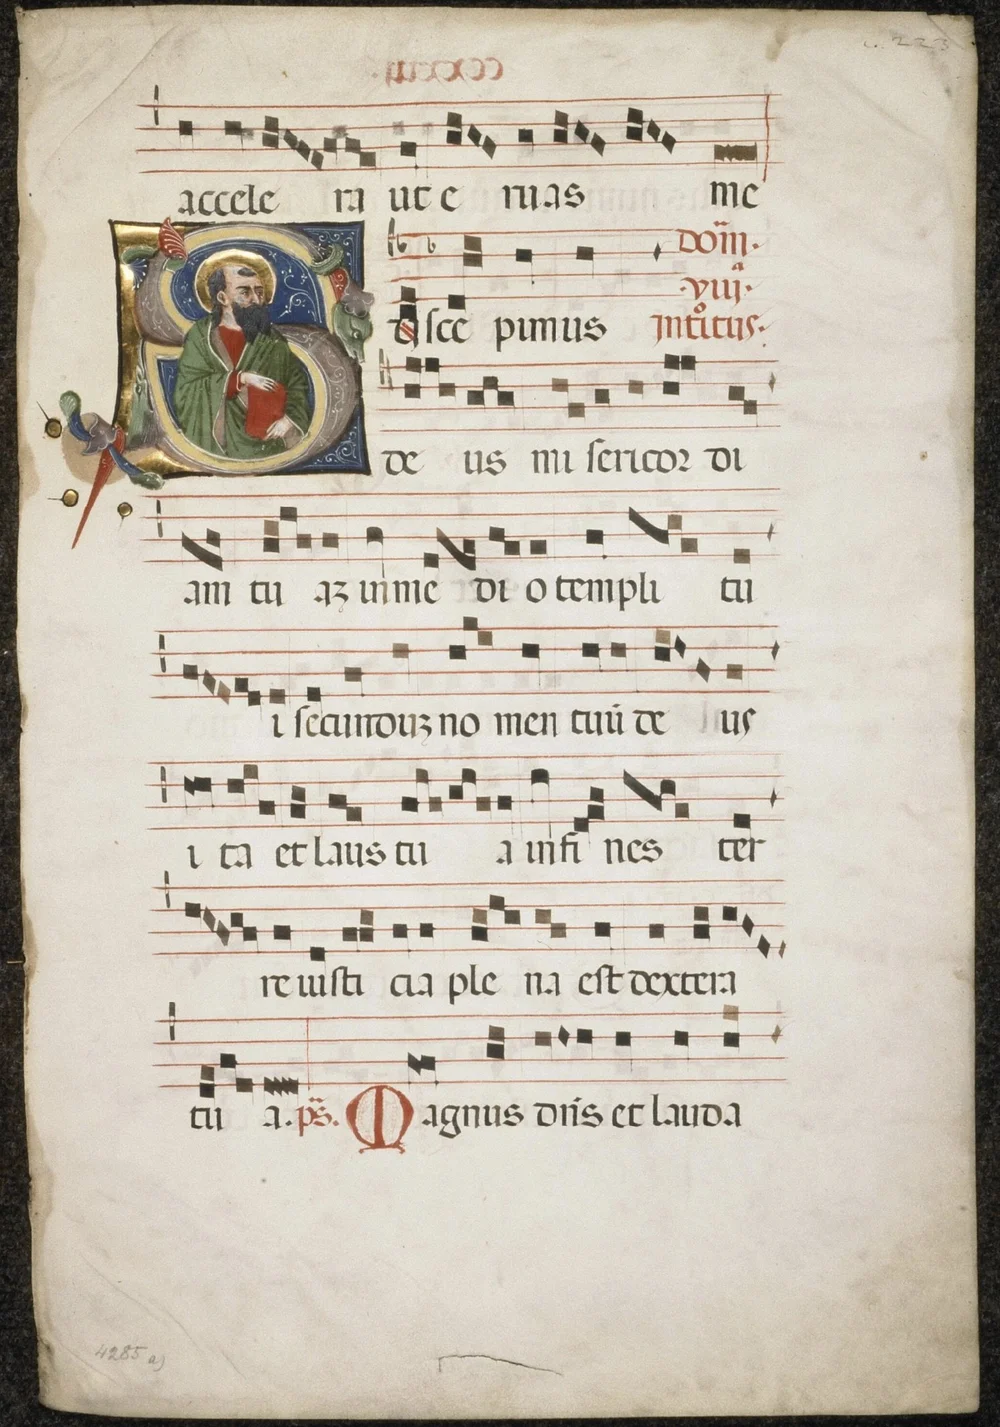 accele ra ut e ruas me
doīn.
.viiȷ.ᵃ
S u sce pimus introitus.
de us mi sericor di
am tu aꝫ in me di o templi tu
i secunduꝫ no men tuū de us
i ta et laus tu a in fi nes ter
re iusti cia ple na est dextera
tu a. ps. Magnus dn̄s et lauda
4285 a)